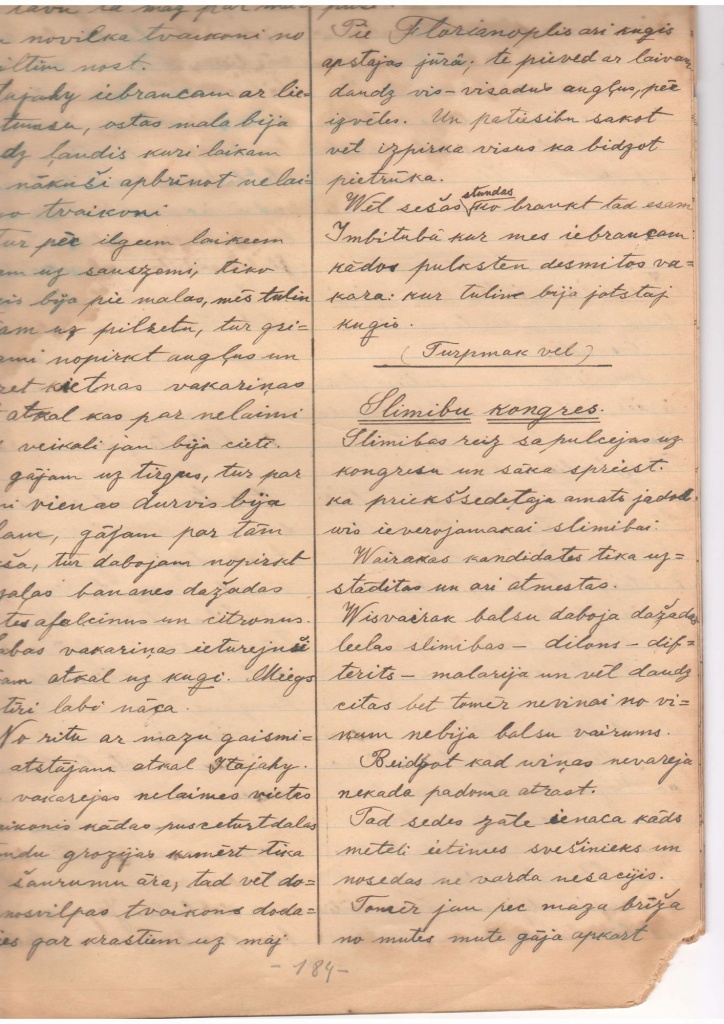 novilka tvaikoni no
nost.
iebraucam ar lie=
ostas mala bija
ļaudis kuri laikam
nākuši apbrīnot nelai=
tvaikoni
pēc ilgeem laikeem
uz sauszemi, tiko
bija pie malas, mēs tulin
uz pilsetu, tur gri=
nopirkt augļus un
vakariņas
atkal kas par nelaimi
veikali jau bija ciete.
gājam uz tirgus, tur par
vienas durvis bija
gājam par tām
tur dabojam nopirkt
bananes dažadas
afelcinus un citronus.
vakariņas ieturejuši
atkal uz kugi. Miegs
labi nāca.
No ritu ar mazu gaismi=
atstājam atkal Itajahy.
vakarejas nelaimes vietes
kādas pusceturtdalas
grozijas kamērt tika
šaurumu āra, tad vēl do=
nosvilpas tvaikons doda=
gar krastiem uz māj
Pie Florianoplis ari kugis
apstajas jūrā; te pieved ar laivam
daudz vis-visadus augļus, pēc
izvēles. Un patiesibu sakot
vēl izpirka visus ka bidzot
pietrūka.
Wēl sešas stundas ko braukt tad esam
Imbitubā kur mes iebraucam
kādos pulksten desmitos va=
kara: kur tuline bija jatstaj
kugis.
(Turpmak vel)
Slimibu kongres.
Slimibas reiz sapulcejas uz
kongresu un sāka spriest.
ka priekšsedetaja amats jadod
wis ieverojamakai slimibai.
Wairakas kandidates tika uz=
stāditas un ari atmestas.
Wisvairak balsu daboja dažadas
leelas slimibas – dilons – dif=
terits – malarija un vēl daudz
citas bet tomēr nevinai no vi=
ņum nebija balsu vairums.
Beidzot kad wiņas nevareja
nekada padoma atrast.
Tad sedes zāle ienaca kāds
meteli ietinies svešinieks un
nosedas ne varda nesacijis.
Tomēr jau pec maza brīža
no mutes mute gāja apkart
-184-